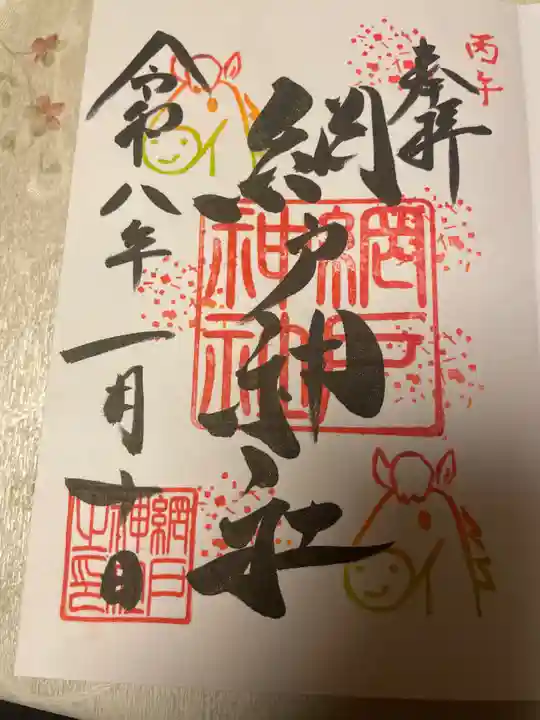 丙午
奉拝
網戸神社
網戸
神社
令和八年
一月十日
網戸
神社
之印